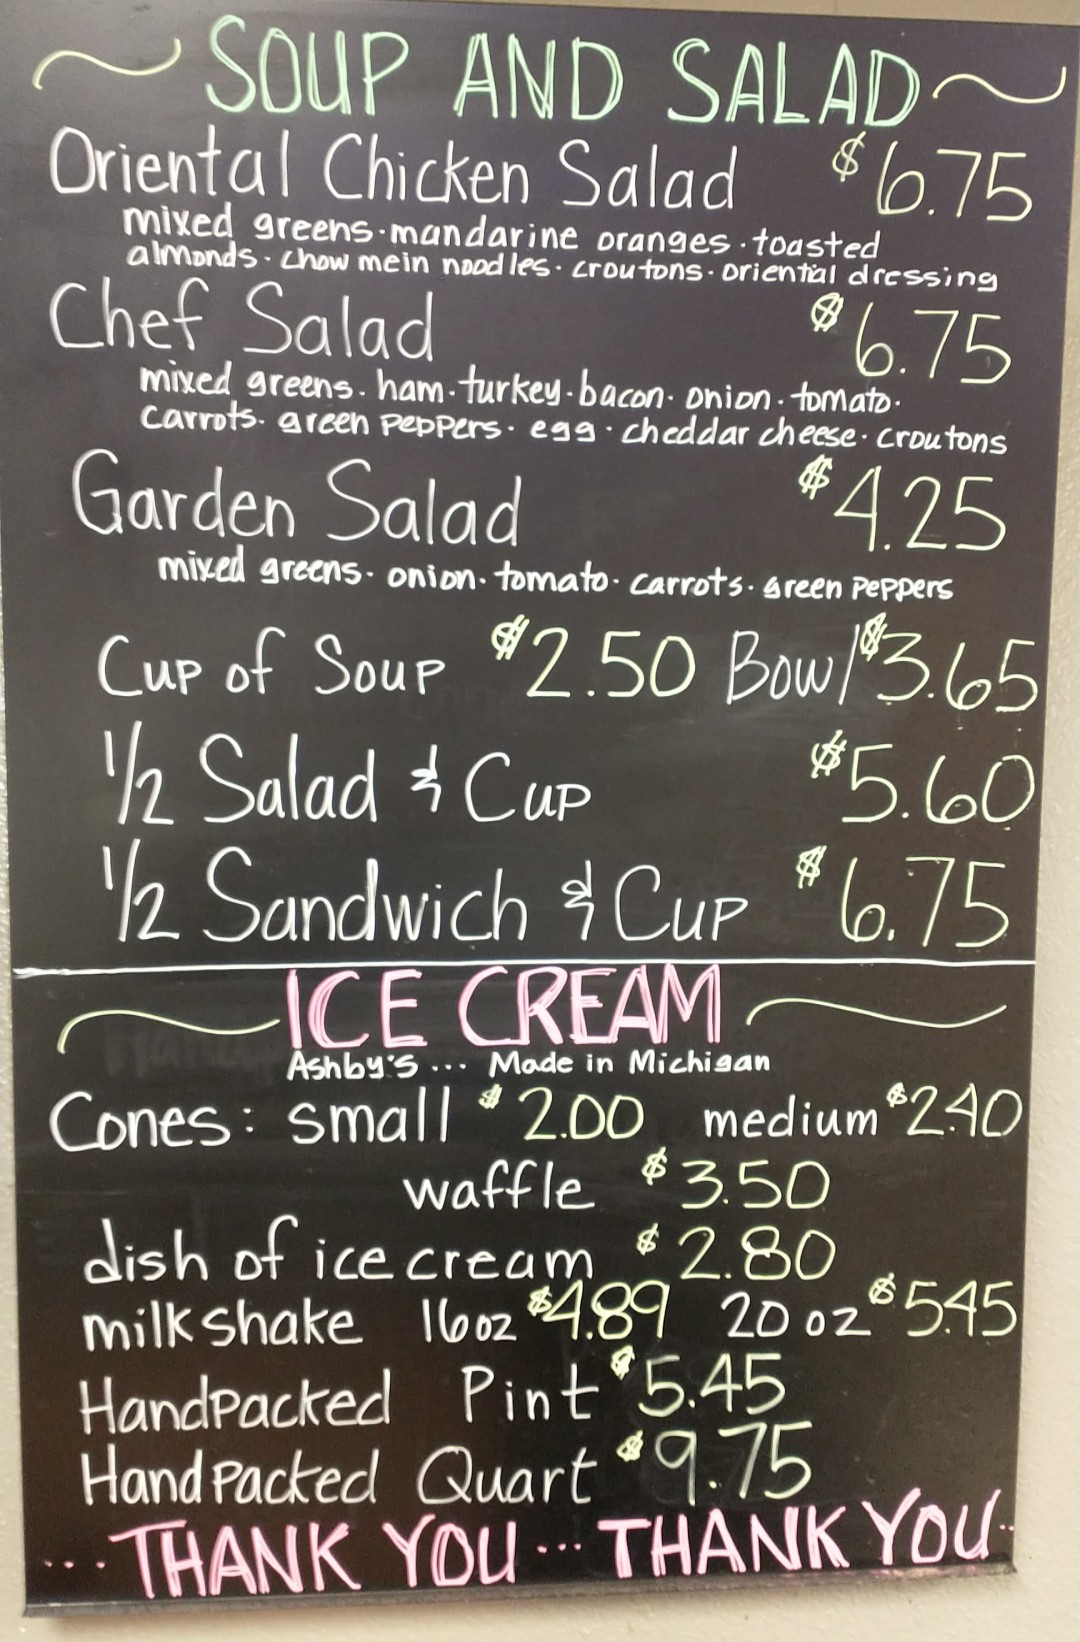 SOUP AND SALAD
Oriental Chicken Salad $6.75
mixed greens · mandarine oranges · toasted
almonds · chow mein noodles · croutons · oriential dressing
Chef Salad $6.75
mixed greens · ham · turkey · bacon · onion · tomato ·
carrots · green peppers · egg · cheddar cheese · croutons
Garden Salad $4.25
mixed greens · onion · tomato · carrots · green peppers
Cup of Soup $2.50 Bowl $3.65
1/2 Salad & Cup $5.60
1/2 Sandwich & Cup $6.75
ICE CREAM
Ashby's ... Made in Michigan
Cones: small $2.00 medium $2.40
waffle $3.50
dish of ice cream $2.80
milkshake 16oz $4.89 20 oz $5.45
Handpacked Pint $5.45
Handpacked Quart $9.75
... THANK YOU ... THANK YOU..